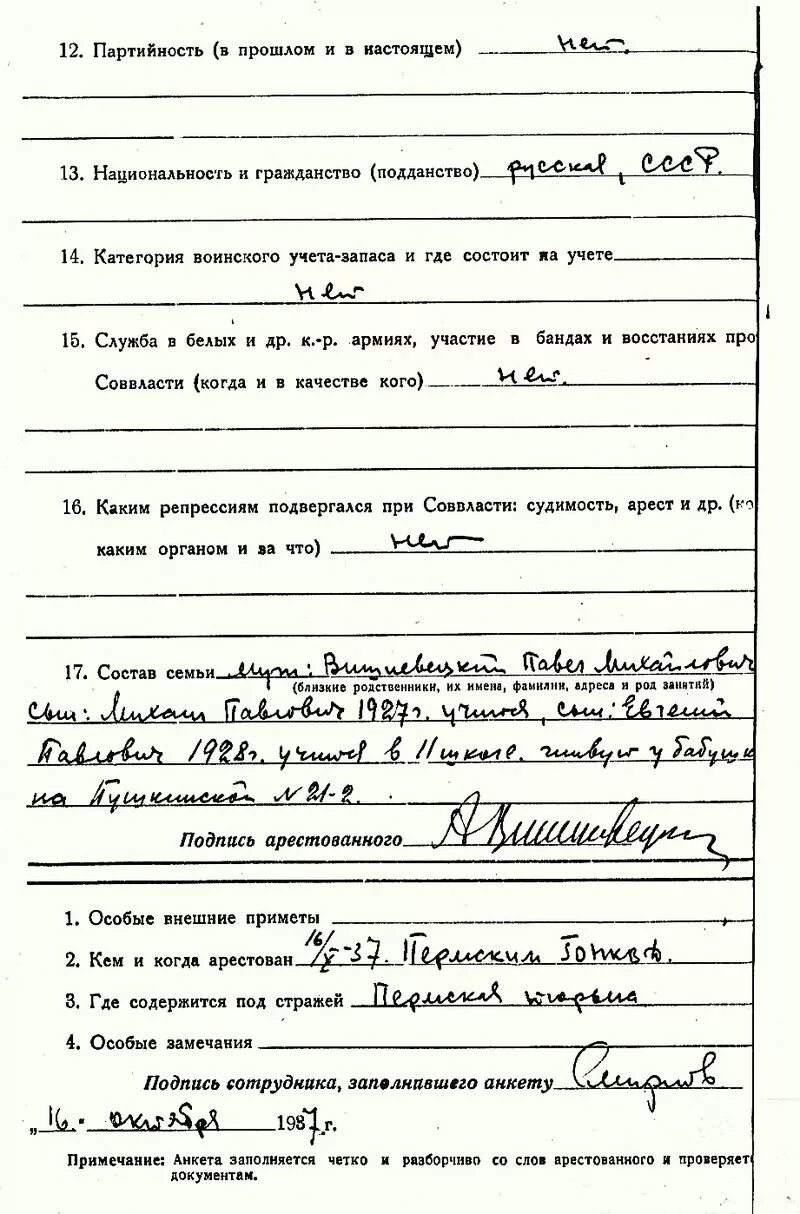 12. Партийность (в прошлом и в настоящем) нет.
13. Национальность и гражданство (подданство) русская, СССР.
14. Категория воинского учета-запаса и где состоит на учете
нет
15. Служба в белых и др. к.-р. армиях, участие в бандах и восстаниях про
Соввласти (когда и в качестве кого) нет.
16. Каким репрессиям подвергался при Соввласти: судимость, арест и др. (ко
каким органом и за что) нет
17. Состав семьи муж: Вишневецкий Павел Михайлович
(близкие родственники, их имена, фамилии, адреса и род занятий)
сын: Михаил Павлович 1927г. учится, сын: Евгений
Павлович 1928г. учится в 11 школе. живут у бабушк
на Пушкинской № 21-2.
Подпись арестованного АВишневецкая
1. Особые внешние приметы
2. Кем и когда арестован 16/X-37. Пермским ГОНКВД.
3. Где содержится под стражей Пермская тюрьма
4. Особые замечания
Подпись сотрудника, заполнившего анкету Смирнов
„16." октября 1937 г.
Примечание: Анкета заполняется четко и разборчиво со слов арестованного и проверяет
документам.